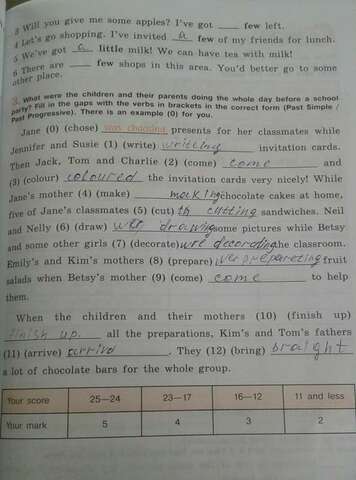 3 Will you give me some apples? I've got ____ few left.
4 Let's go shopping. I've invited a few of my friends for lunch.
5 We've got a little milk! We can have tea with milk!
6 There are ____ few shops in this area. You'd better go to some
other place.
3. What were the children and their parents doing the whole day before a school
party? Fill in the gaps with the verbs in brackets in the correct form (Past Simple /
Past Progressive). There is an example (0) for you.
Jane (0) (chose) was choosing presents for her classmates while
Jennifer and Susie (1) (write) writting invitation cards.
Then Jack, Tom and Charlie (2) (come) come and
(3) (colour) coloured the invitation cards very nicely! While
Jane's mother (4) (make) making chocolate cakes at home,
five of Jane's classmates (5) (cut) cutting sandwiches. Neil
and Nelly (6) (draw) drawing some pictures while Betsy
and some other girls (7) (decorate) wre decorating the classroom.
Emily's and Kim's mothers (8) (prepare) fruit
salads when Betsy's mother (9) (come) come to help
them.
When the children and their mothers (10) (finish up)
finish up. all the preparations, Kim's and Tom's fathers
(11) (arrive) . They (12) (bring) braight
a lot of chocolate bars for the whole group.
Your score 25—24 23—17 16—12 11 and less
Your mark 5 4 3 2